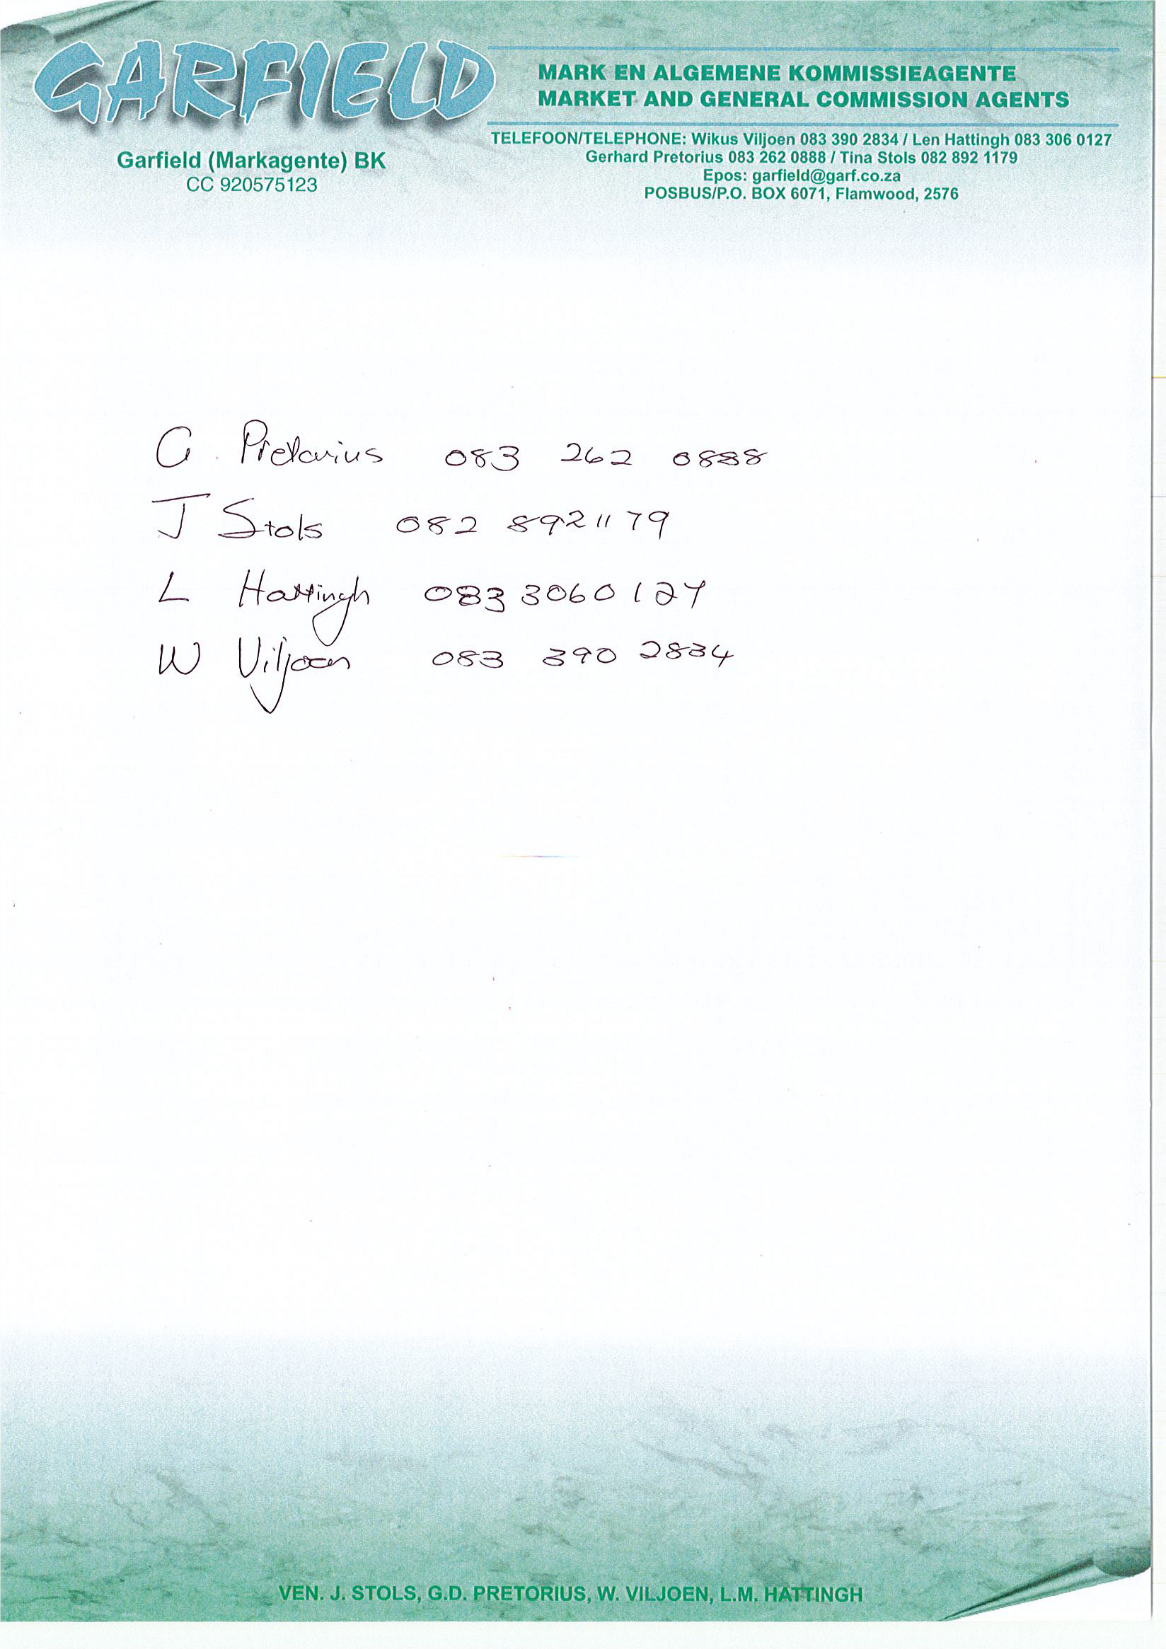 GARFIELD
MARK EN ALGEMENE KOMMISSIEAGENTE
MARKET AND GENERAL COMMISSION AGENTS
TELEFOON/TELEPHONE: Wikus Viljoen 083 390 2834 / Len Hattingh 083 306 0127
Gerhard Pretorius 083 262 0888 / Tina Stols 082 892 1179
Epos: garfield@garf.co.za
POSBUS/P.O. BOX 6071, Flamwood, 2576
Garfield (Markagente) BK
CC 920575123
G. Pretorius 083 262 0888
J Stols 082 892 1179
L Hattingh 083 306 0127
W Viljoen 083 390 2834
VEN. J. STOLS, G.D. PRETORIUS, W. VILJOEN, L.M. HATTINGH